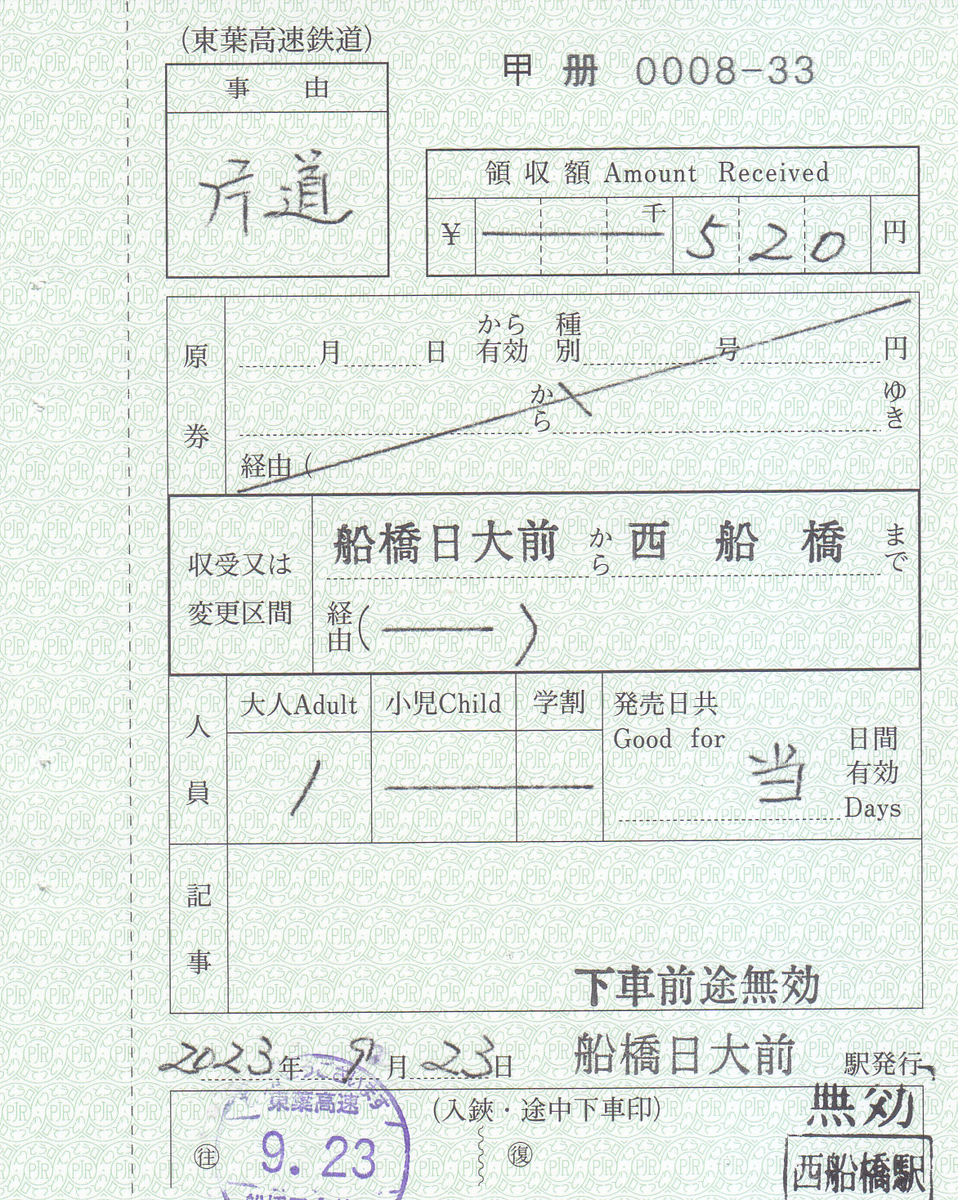 (東葉高速鉄道)
甲 册 0008-33
事由
片道
領収額 Amount Received
¥ 千 520 円
原券
月 日 から有効 種別 号 円
から ゆき
経由(
収受又は変更区間
船橋日大前 から 西船橋 まで
経由( )
人員
大人Adult 小児Child 学割
1
発売日共
Good for 当 日間有効
Days
記事
下車前途無効
2023年 9月 23日 船橋日大前 駅発行
(入鋏・途中下車印)
往 復
東葉高速
9.23
無効
西船橋駅